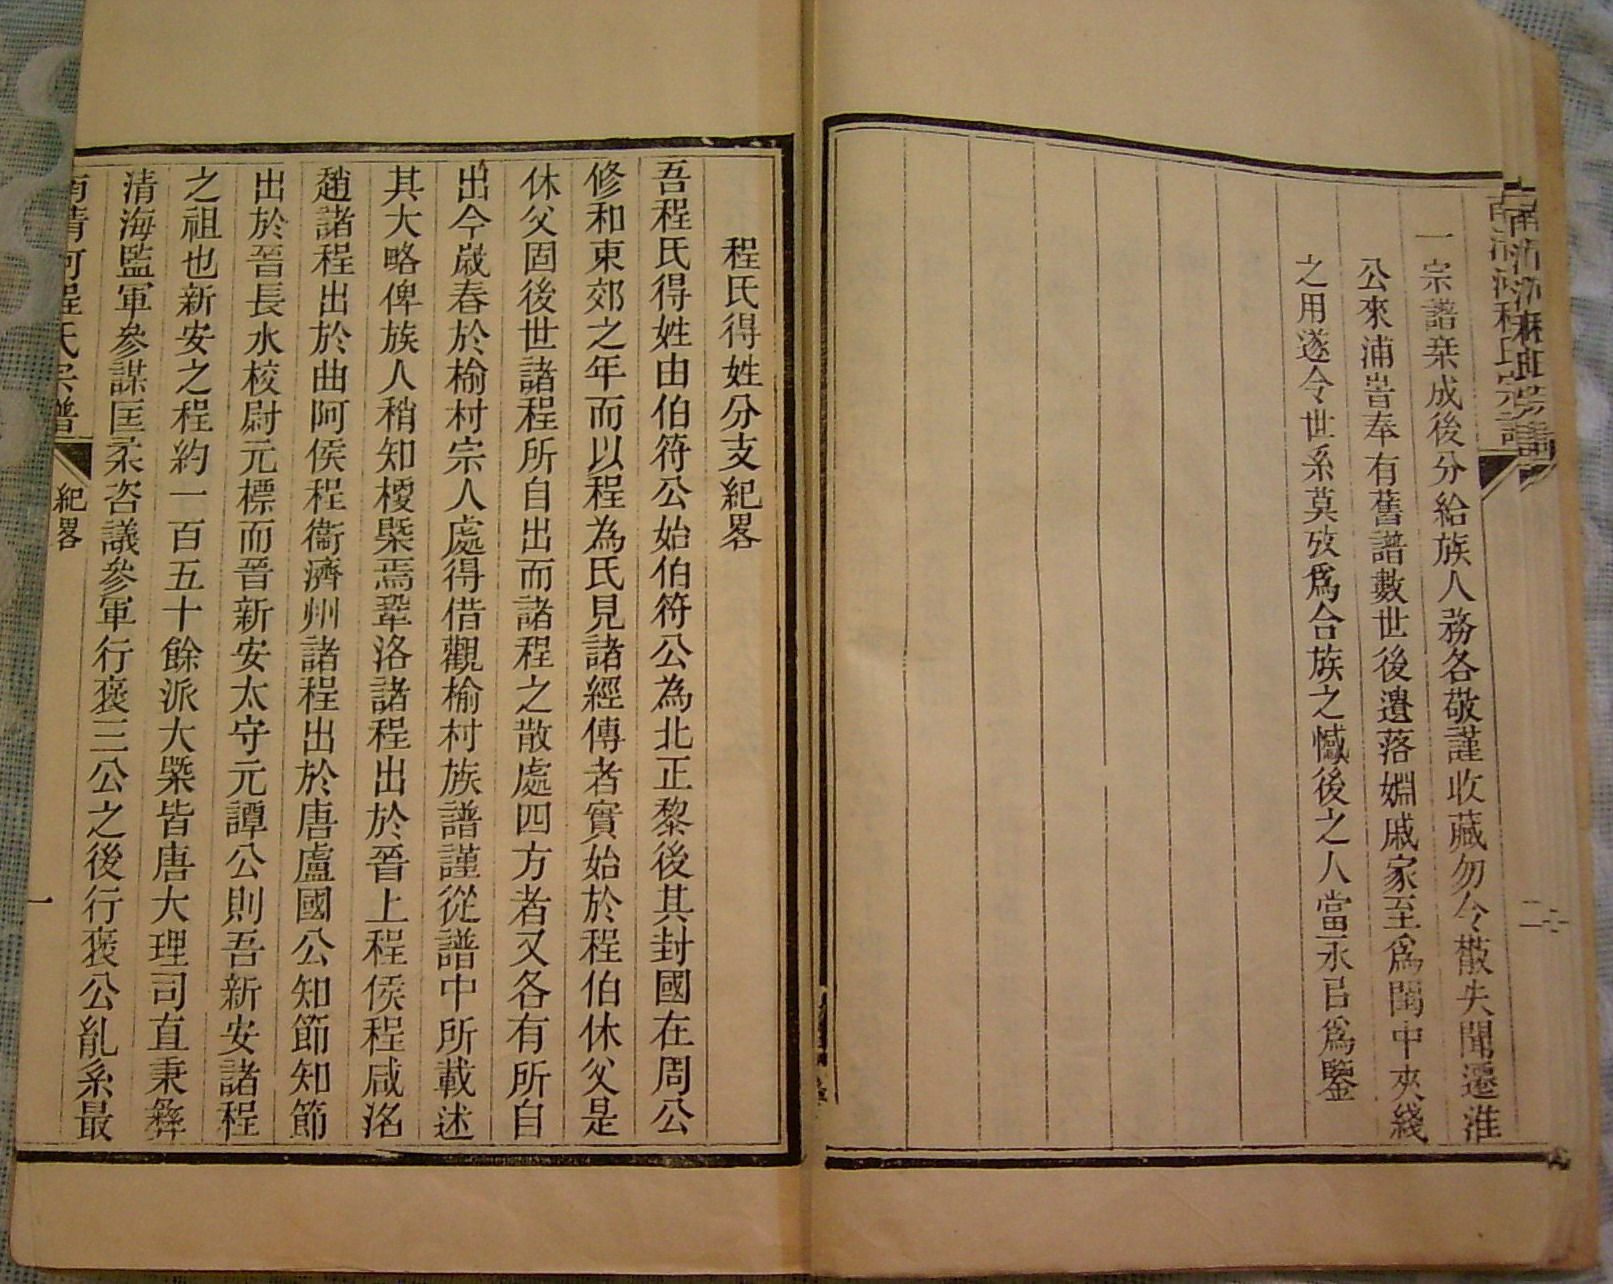 一宗譜栞成後分給族人務各敬謹收藏勿令散失聞遷淮
公來浦旹奉有舊譜數世後遺落婣戚家至爲閨中夾綫
之用遂令世系莫攷爲合族之憾後之人當永㠯爲鑒
程氏得姓分支紀畧
吾程氏得姓由伯符公始伯符公為北正黎後其封國在周公
修和東郊之年而以程為氏見諸經傳者實始於程伯休父是
休父固後世諸程所自出而諸程之散處四方者又各有所自
出今嵗春於榆村宗人處得借觀榆村族譜謹從譜中所載述
其大略俾族人稍知梗槩焉鞏洛諸程出於晉上程侯程咸洺
趙諸程出於曲阿侯程衞濟州諸程出於唐盧國公知節知節
出於晉長水校尉元標而晉新安太守元譚公則吾新安諸程
之祖也新安之程約一百五十餘派大槩皆唐大理司直秉彝
清海監軍參謀匡柔咨議參軍行褒三公之後行褒公亂系最
南清河程氏宗譜
紀畧
一